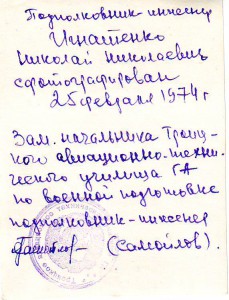 Подполковник-инженер
Игнатенко
Николай Николаевич
сфотографирован
25 февраля 1974 г
Зам. начальника Троиц-
кого авиационно-техни-
ческого училища ГА
по военной подготовке
подполковник-инженер
(Самойлов).